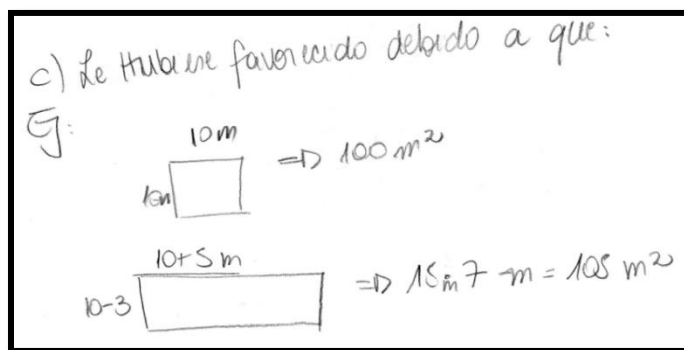 c) Le Hubiese favorecido debido a que:
Ej:
10m
10m => 100 m²
10+5 m
10-3 => 15m 7 m = 105 m²